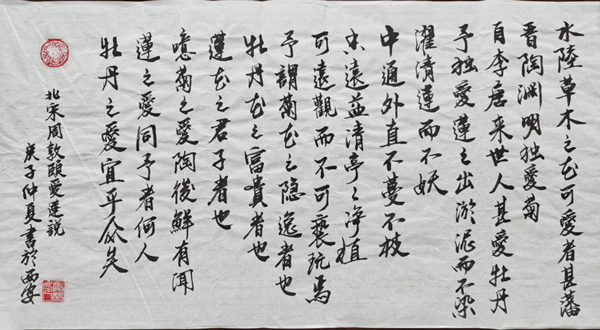 水陸草木之花可愛者甚藩
晋陶渊明独愛菊
自李唐来世人甚愛牡丹
予独愛蓮之出淤泥而不染
濯清漣而不妖
中通外直不蔓不枝
香遠益清亭々净植
可遠觀而不可亵玩焉
予謂菊花之隐逸者也
牡丹花之富貴者也
蓮花之君子者也
噫菊之愛陶後鮮有闻
蓮之愛同予者何人
牡丹之愛宜乎众矣
北宋周敦颐愛蓮説
庚子仲夏書於西安